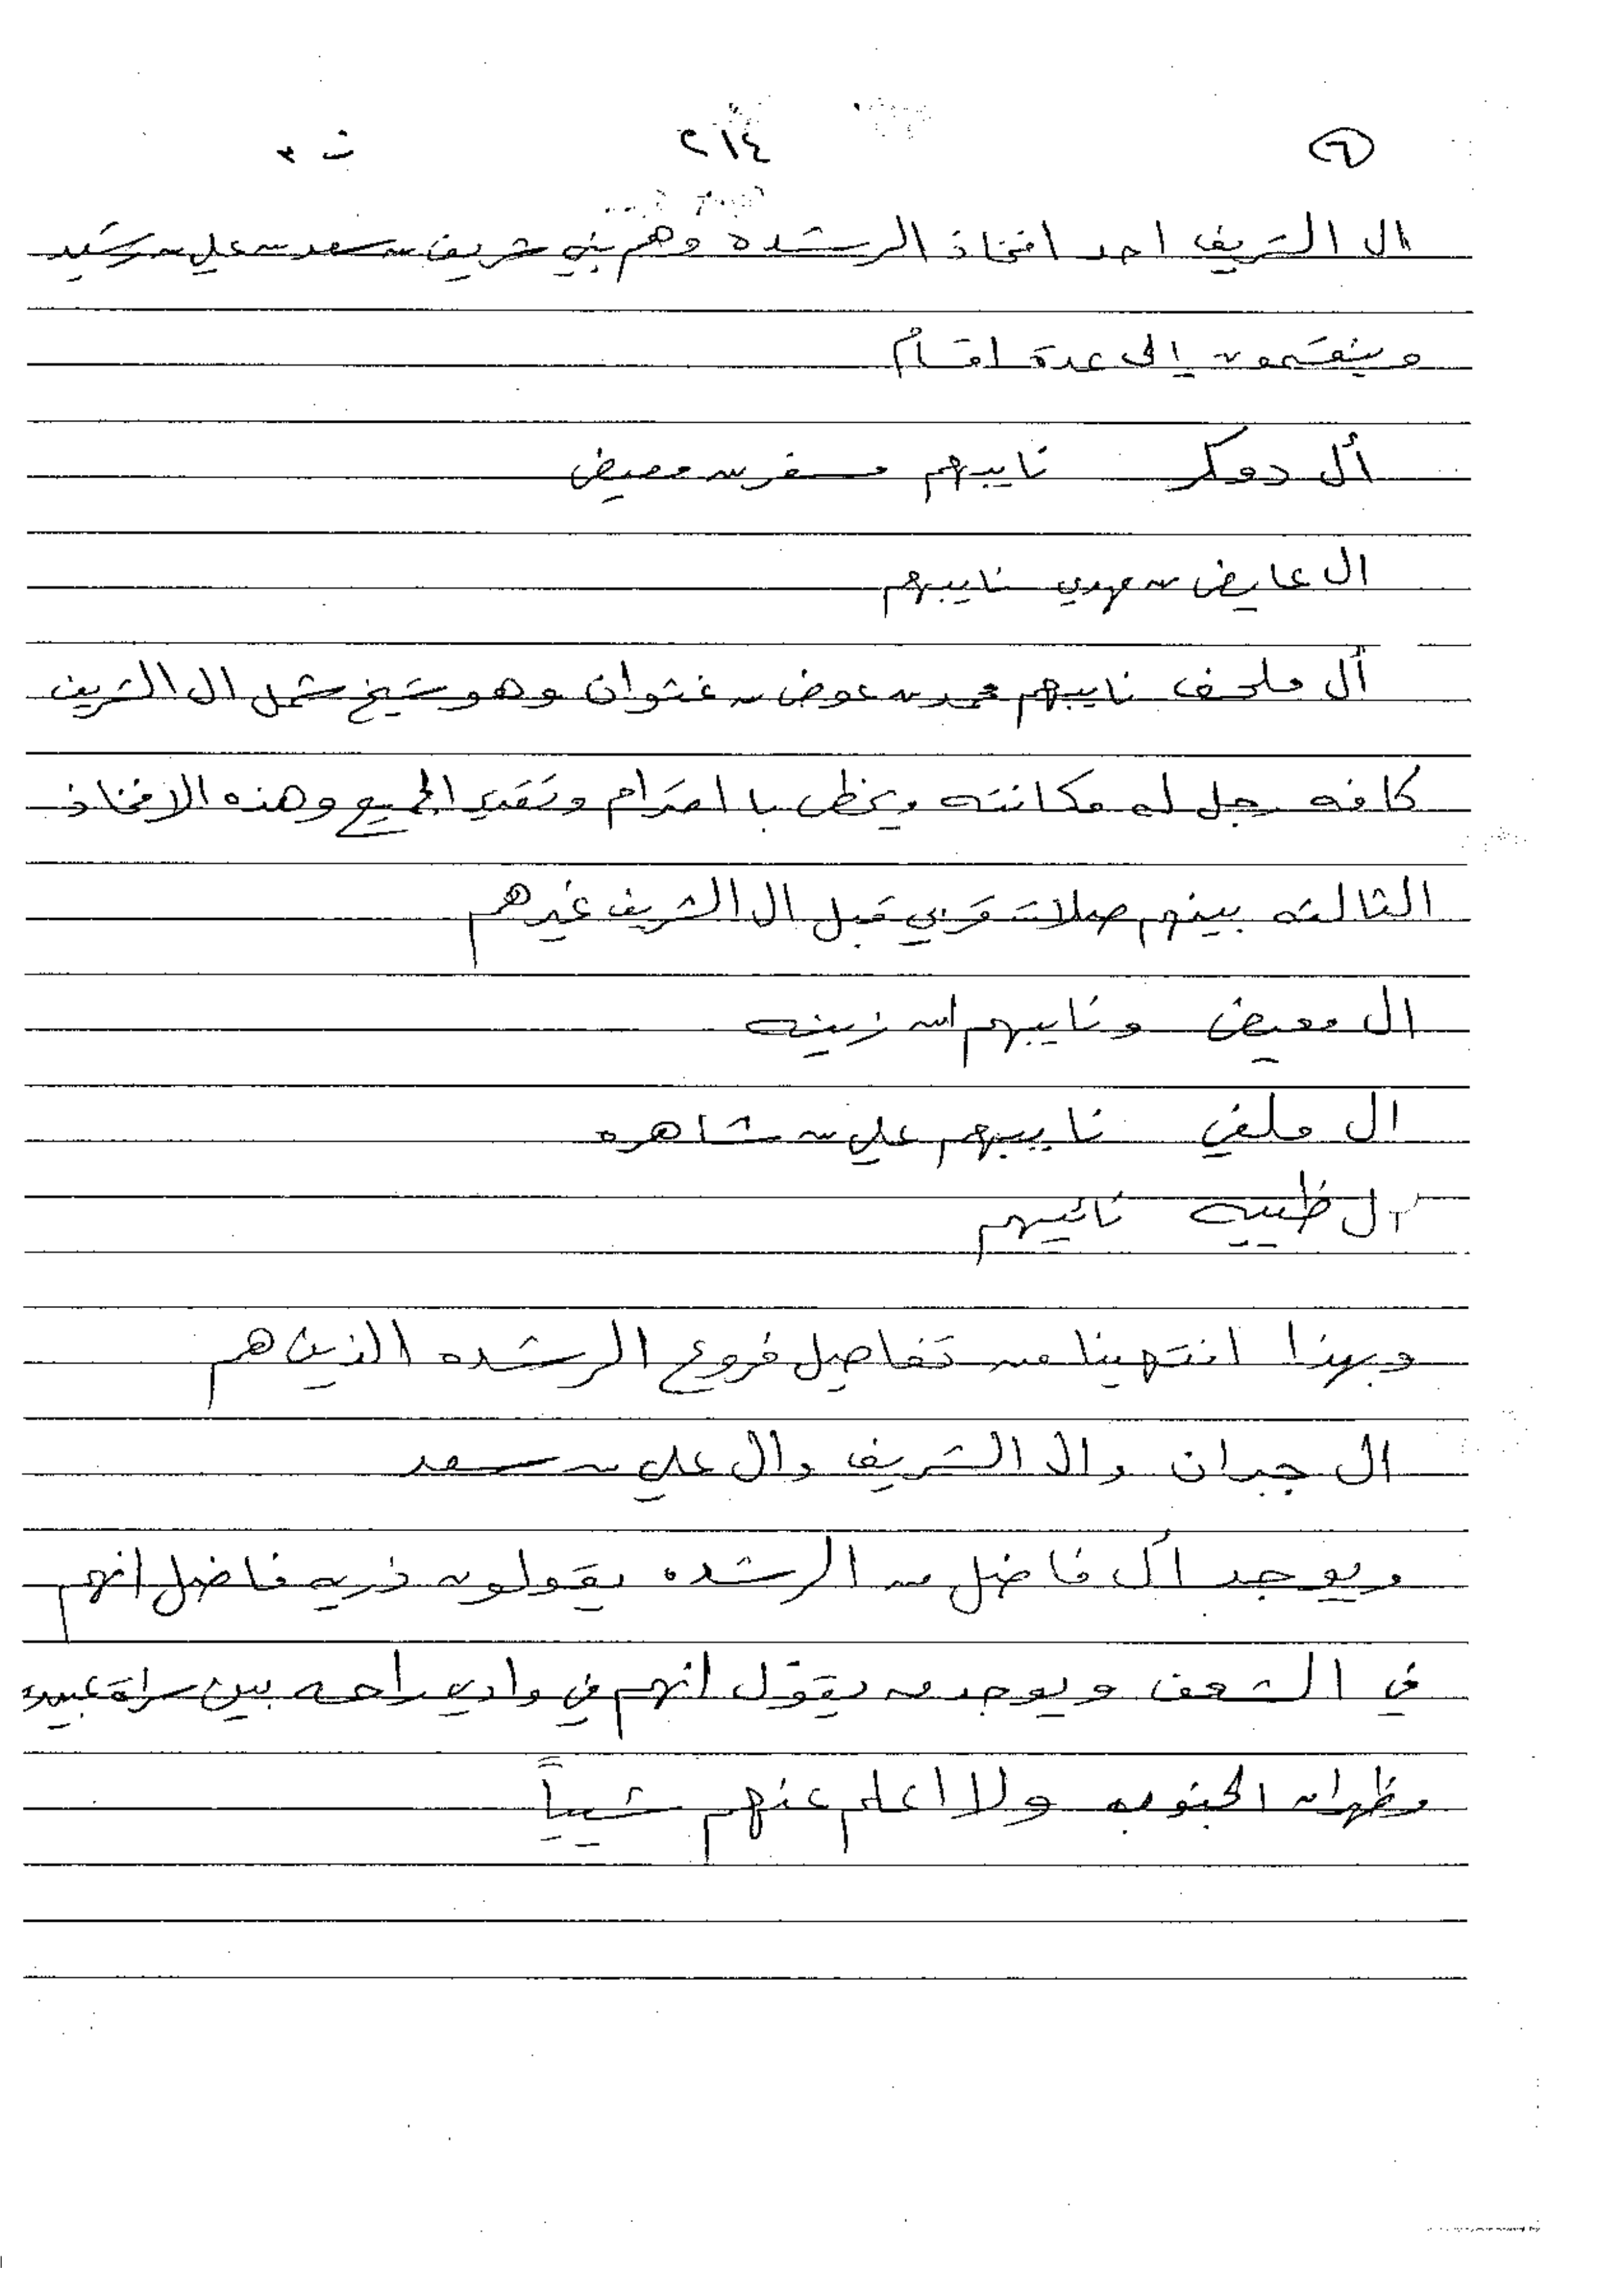 ٦ ٢١٤ ت ٣
ال الشريف احد افخاذ الرشده وهم بني شريف بن سعد بن علي بن رشيد
وينقسمون إلى عدة اقسام
أل دوكر نايبهم مسفر بن معيض
ال عايض بن مهدي نايبهم
أل ملحف نايبهم محمد بن عوض بن غثوان وهو شيخ شمل ال الشريف
كافه رجل له مكانته ويحظى با احترام وتقدير الجميع وهذه الافخاذ
الثالثه بينهم صلات قربي قبل ال الشريف غيرهم
ال معيض ونايبهم ابن زينه
ال ملفي نايبهم علي بن شاهره
ال ظبيه نائبهم
وبهذا انتهينا من تفاصيل فروع الرشده الذين هم
ال جبران وال الشريف وال علي بن سعد
ويوجد أل فاضل من الرشده يقولون ذريه فاضل انهم
في الشعف ويوجد من يقول انهم في وادي راحه بين سراة عبيده
وظهران الجنوب ولا اعلم عنهم شيياً